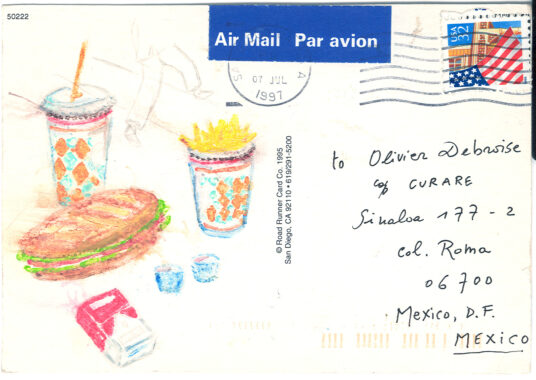 50222
Air Mail Par avion
USA 32
07 JUL
1997
© Road Runner Card Co. 1995
San Diego, CA 92110 • 619/291-5200
to Olivier Debroise
c/o CURARE
Sinaloa 177-2
col. Roma
06700
Mexico, D.F.
MEXICO